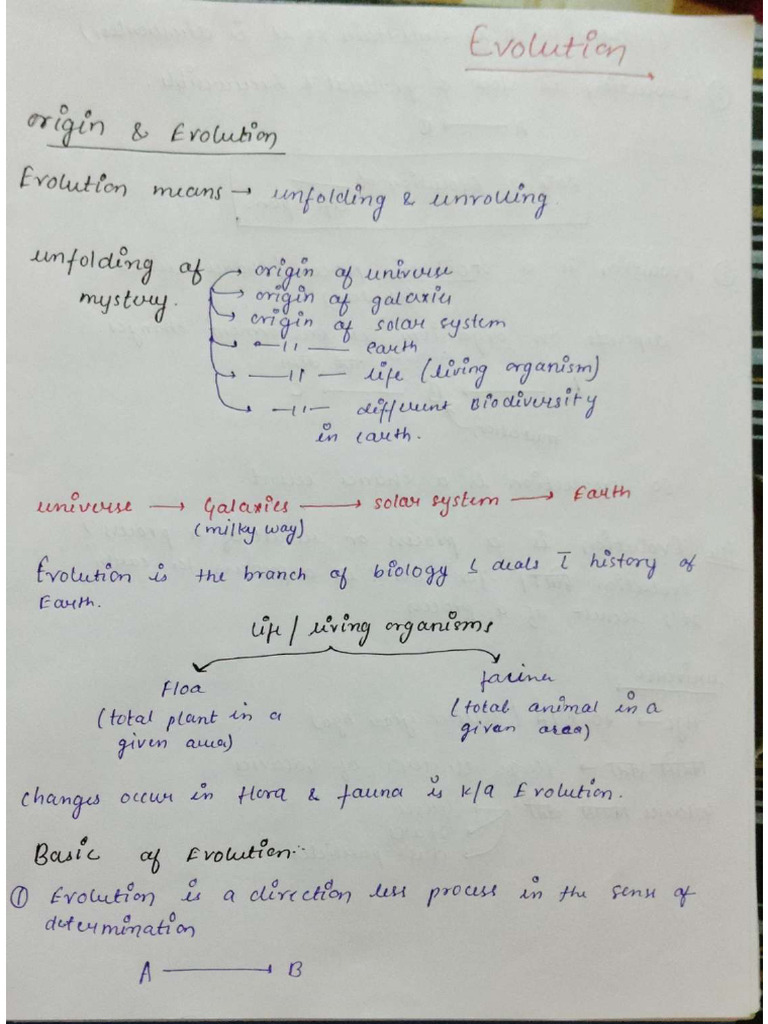 Evolution
Origin & Evolution
Evolution means → unfolding & unrolling
unfolding of
mystery.
origin of universe
origin of galaxies
origin of solar system
—11— earth
—11— life (living organism)
—11— different Biodiversity
in earth.
universe → Galaxies → solar system → Earth
(milky way)
Evolution is the branch of biology deals history of
Earth.
life / living organisms
Floa
(total plant in a
given area)
fauna
(total animal in a
given area)
changes occur in flora & fauna is k/a Evolution.
Basic of Evolution:
① Evolution is a direction less process in the sense of
determination
A → B